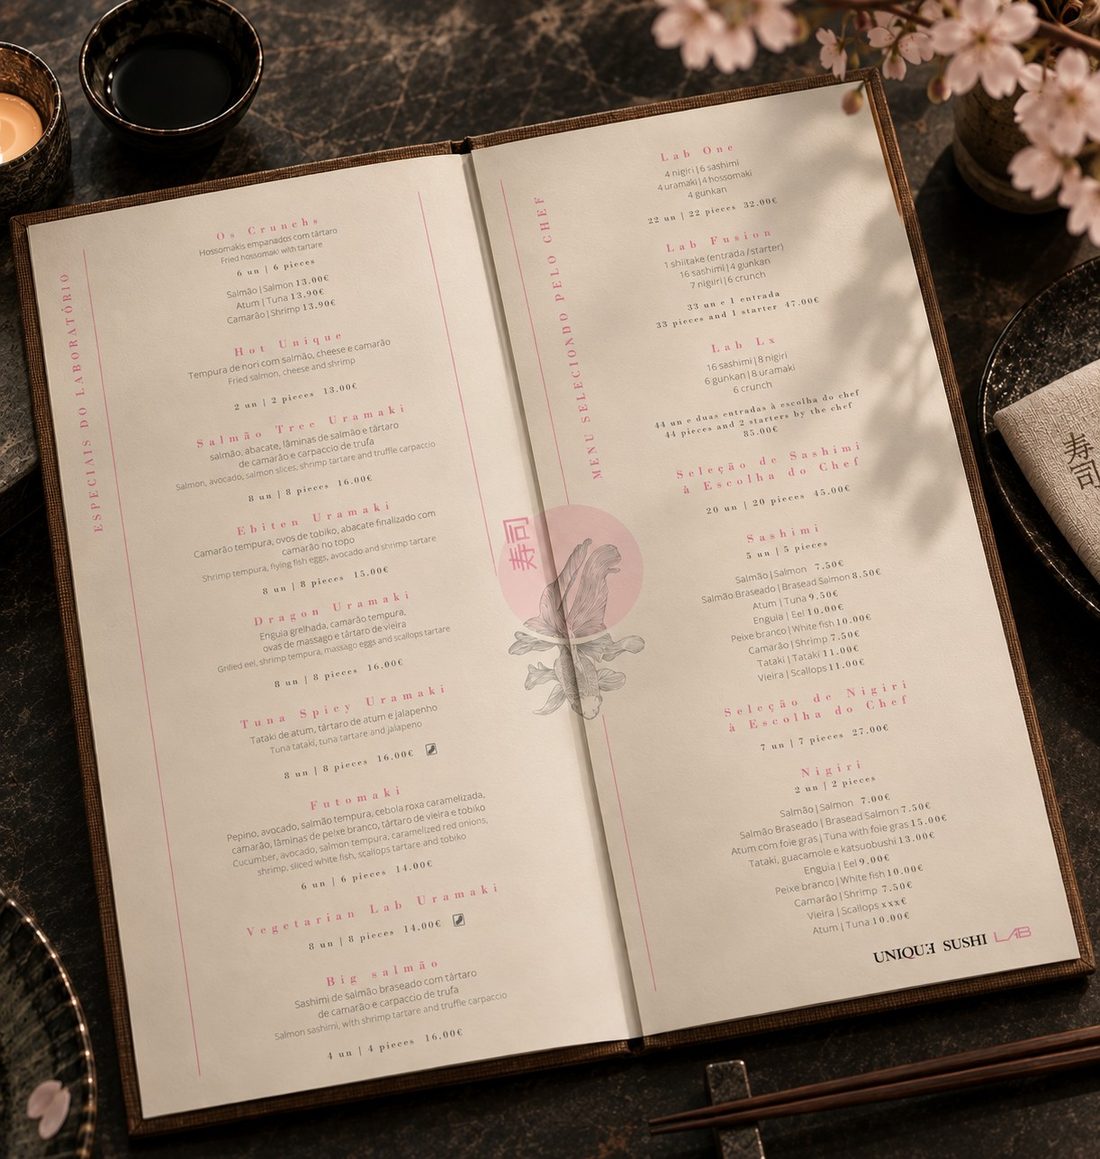 ESPECIAIS DO LABORATÓRIO
Os Crunchs
Hossomakis empanados com tártaro
Fried hossomaki with tartare
6 un | 6 pieces
Salmão | Salmon 13.00€
Atum | Tuna 13.90€
Camarão | Shrimp 13.90€
Hot Unique
Tempura de nori com salmão, cheese e camarão
Fried salmon, cheese and shrimp
2 un | 2 pieces 13.00€
Salmão Tree Uramaki
salmão, abacate, lâminas de salmão e tártaro
de camarão e carpaccio de trufa
Salmon, avocado, salmon slices, shrimp tartare and truffle carpaccio
8 un | 8 pieces 16.00€
Ebiten Uramaki
Camarão tempura, ovos de tobiko, abacate finalizado com
camarão no topo
Shrimp tempura, flying fish eggs, avocado and shrimp tartare
8 un | 8 pieces 15.00€
Dragon Uramaki
Enguia grelhada, camarão tempura,
ovas de massago e tártaro de vieira
Grilled eel, shrimp tempura, massago eggs and scallops tartare
8 un | 8 pieces 16.00€
Tuna Spicy Uramaki
Tataki de atum, tártaro de atum e jalapenho
Tuna tataki, tuna tartare and jalapeno
8 un | 8 pieces 16.00€
Futomaki
Pepino, avocado, salmão tempura, cebola roxa caramelizada,
camarão, lâminas de peixe branco, tártaro de vieira e tobiko
Cucumber, avocado, salmon tempura, caramelized red onions,
shrimp, sliced white fish, scallops tartare and tobiko
6 un | 6 pieces 14.00€
Vegetarian Lab Uramaki
8 un | 8 pieces 14.00€
Big salmão
Sashimi de salmão braseado com tártaro
de camarão e carpaccio de trufa
Salmon sashimi, with shrimp tartare and truffle carpaccio
4 un | 4 pieces 16.00€
寿司
MENU SELECIONDO PELO CHEF
Lab One
4 nigiri | 6 sashimi
4 uramaki | 4 hossomaki
4 gunkan
22 un | 22 pieces 32.00€
Lab Fusion
1 shiitake (entrada / starter)
16 sashimi | 4 gunkan
7 nigiri | 6 crunch
33 un e 1 entrada
33 pieces and 1 starter 47.00€
Lab Lx
16 sashimi | 8 nigiri
6 gunkan | 8 uramaki
6 crunch
44 un e duas entradas à escolha do chef
44 pieces and 2 starters by the chef
85.00€
Seleção de Sashimi
à Escolha do Chef
20 un | 20 pieces 45.00€
Sashimi
5 un | 5 pieces
Salmão | Salmon 7.50€
Salmão Braseado | Brasead Salmon 8.50€
Atum | Tuna 9.50€
Enguia | Eel 10.00€
Peixe branco | White fish 10.00€
Camarão | Shrimp 7.50€
Tataki | Tataki 11.00€
Vieira | Scallops 11.00€
Seleção de Nigiri
à Escolha do Chef
7 un | 7 pieces 27.00€
Nigiri
2 un | 2 pieces
Salmão | Salmon 7.00€
Salmão Braseado | Brasead Salmon 7.50€
Atum com foie gras | Tuna with foie gras 15.00€
Tataki, guacamole e katsuobushi 13.00€
Enguia | Eel 9.00€
Peixe branco | White fish 10.00€
Camarão | Shrimp 7.50€
Vieira | Scallops xxx€
Atum | Tuna 10.00€
UNIQUE SUSHI LAB
寿司